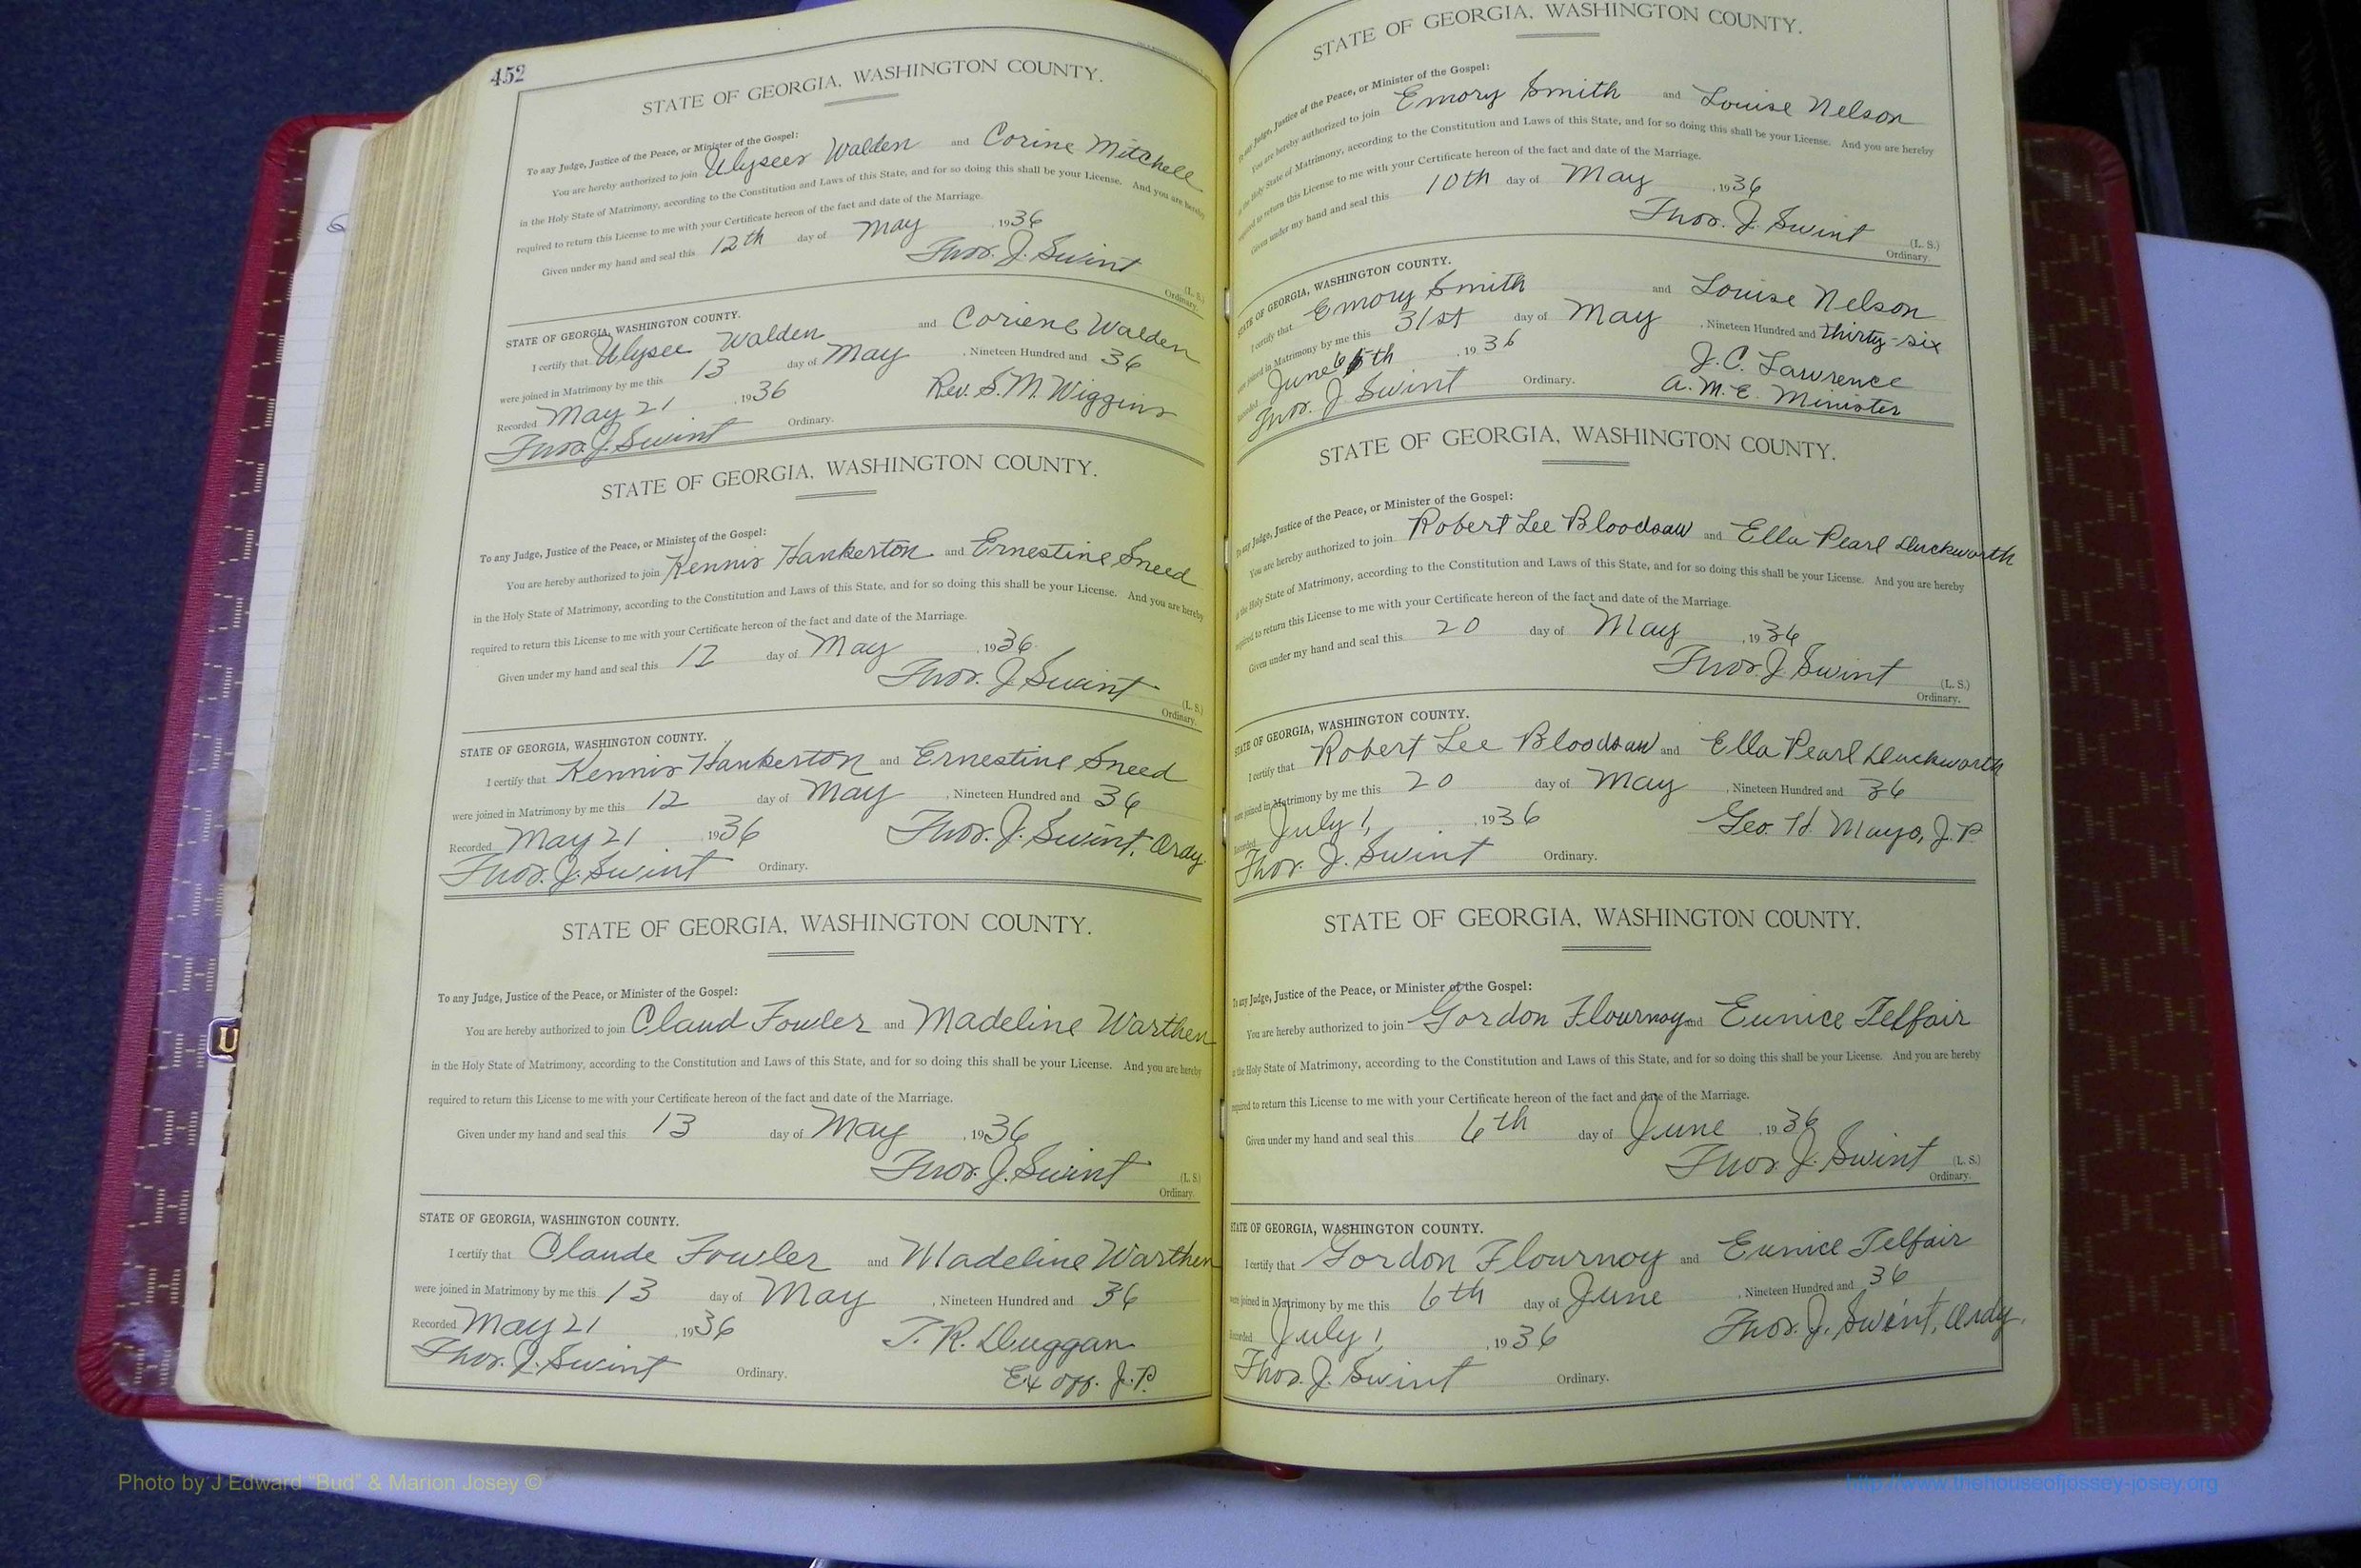 452
STATE OF GEORGIA, WASHINGTON COUNTY.
To any Judge, Justice of the Peace, or Minister of the Gospel:
You are hereby authorized to join Ulysees Walden and Corine Mitchell
in the Holy State of Matrimony, according to the Constitution and Laws of this State, and for so doing this shall be your License. And you are hereby
required to return this License to me with your Certificate hereon of the fact and date of the Marriage.
Given under my hand and seal this 12th day of May, 1936
Thos. J. Swint (L. S.)
Ordinary.
STATE OF GEORGIA, WASHINGTON COUNTY.
I certify that Ulysee Walden and Coriene Walden
were joined in Matrimony by me this 13 day of May, Nineteen Hundred and 36
Recorded May 21, 1936 Rev. S. M. Wiggins
Thos. J. Swint Ordinary.
STATE OF GEORGIA, WASHINGTON COUNTY.
To any Judge, Justice of the Peace, or Minister of the Gospel:
You are hereby authorized to join Kennis Hankerton and Ernestine Sneed
in the Holy State of Matrimony, according to the Constitution and Laws of this State, and for so doing this shall be your License. And you are hereby
required to return this License to me with your Certificate hereon of the fact and date of the Marriage.
Given under my hand and seal this 12 day of May, 1936
Thos. J. Swint (L. S.)
Ordinary.
STATE OF GEORGIA, WASHINGTON COUNTY.
I certify that Kennis Hankerton and Ernestine Sneed
were joined in Matrimony by me this 12 day of May, Nineteen Hundred and 36
Recorded May 21, 1936 Thos. J. Swint, Ordy.
Thos. J. Swint Ordinary.
STATE OF GEORGIA, WASHINGTON COUNTY.
To any Judge, Justice of the Peace, or Minister of the Gospel:
You are hereby authorized to join Claud Fowler and Madeline Warthen
in the Holy State of Matrimony, according to the Constitution and Laws of this State, and for so doing this shall be your License. And you are hereby
required to return this License to me with your Certificate hereon of the fact and date of the Marriage.
Given under my hand and seal this 13 day of May, 1936
Thos. J. Swint (L. S.)
Ordinary.
STATE OF GEORGIA, WASHINGTON COUNTY.
I certify that Claude Fowler and Madeline Warthen
were joined in Matrimony by me this 13 day of May, Nineteen Hundred and 36
Recorded May 21, 1936 T. R. Duggan
Thos. J. Swint Ordinary. Ex off. J. P.
STATE OF GEORGIA, WASHINGTON COUNTY.
To any Judge, Justice of the Peace, or Minister of the Gospel:
You are hereby authorized to join Emory Smith and Louise Nelson
in the Holy State of Matrimony, according to the Constitution and Laws of this State, and for so doing this shall be your License. And you are hereby
required to return this License to me with your Certificate hereon of the fact and date of the Marriage.
Given under my hand and seal this 10th day of May, 1936
Thos. J. Swint (L. S.)
Ordinary.
STATE OF GEORGIA, WASHINGTON COUNTY.
I certify that Emory Smith and Louise Nelson
were joined in Matrimony by me this 31st day of May, Nineteen Hundred and thirty-six
Recorded June 6th, 1936 J. C. Lawrence
Thos. J. Swint Ordinary. A. M. E. Minister
STATE OF GEORGIA, WASHINGTON COUNTY.
To any Judge, Justice of the Peace, or Minister of the Gospel:
You are hereby authorized to join Robert Lee Bloodsaw and Ella Pearl Duckworth
in the Holy State of Matrimony, according to the Constitution and Laws of this State, and for so doing this shall be your License. And you are hereby
required to return this License to me with your Certificate hereon of the fact and date of the Marriage.
Given under my hand and seal this 20 day of May, 1936
Thos. J. Swint (L. S.)
Ordinary.
STATE OF GEORGIA, WASHINGTON COUNTY.
I certify that Robert Lee Bloodsaw and Ella Pearl Duckworth
were joined in Matrimony by me this 20 day of May, Nineteen Hundred and 36
Recorded July 1, 1936 Geo. H. Mayo, J. P.
Thos. J. Swint Ordinary.
STATE OF GEORGIA, WASHINGTON COUNTY.
To any Judge, Justice of the Peace, or Minister of the Gospel:
You are hereby authorized to join Gordon Flournoy and Eunice Telfair
in the Holy State of Matrimony, according to the Constitution and Laws of this State, and for so doing this shall be your License. And you are hereby
required to return this License to me with your Certificate hereon of the fact and date of the Marriage.
Given under my hand and seal this 6th day of June, 1936
Thos. J. Swint (L. S.)
Ordinary.
STATE OF GEORGIA, WASHINGTON COUNTY.
I certify that Gordon Flournoy and Eunice Telfair
were joined in Matrimony by me this 6th day of June, Nineteen Hundred and 36
Recorded July 1, 1936 Thos. J. Swint, Ordy.
Thos. J. Swint Ordinary.
U
Photo by J Edward "Bud" & Marion Josey ©
http://www.thehouseofjossey-josey.org